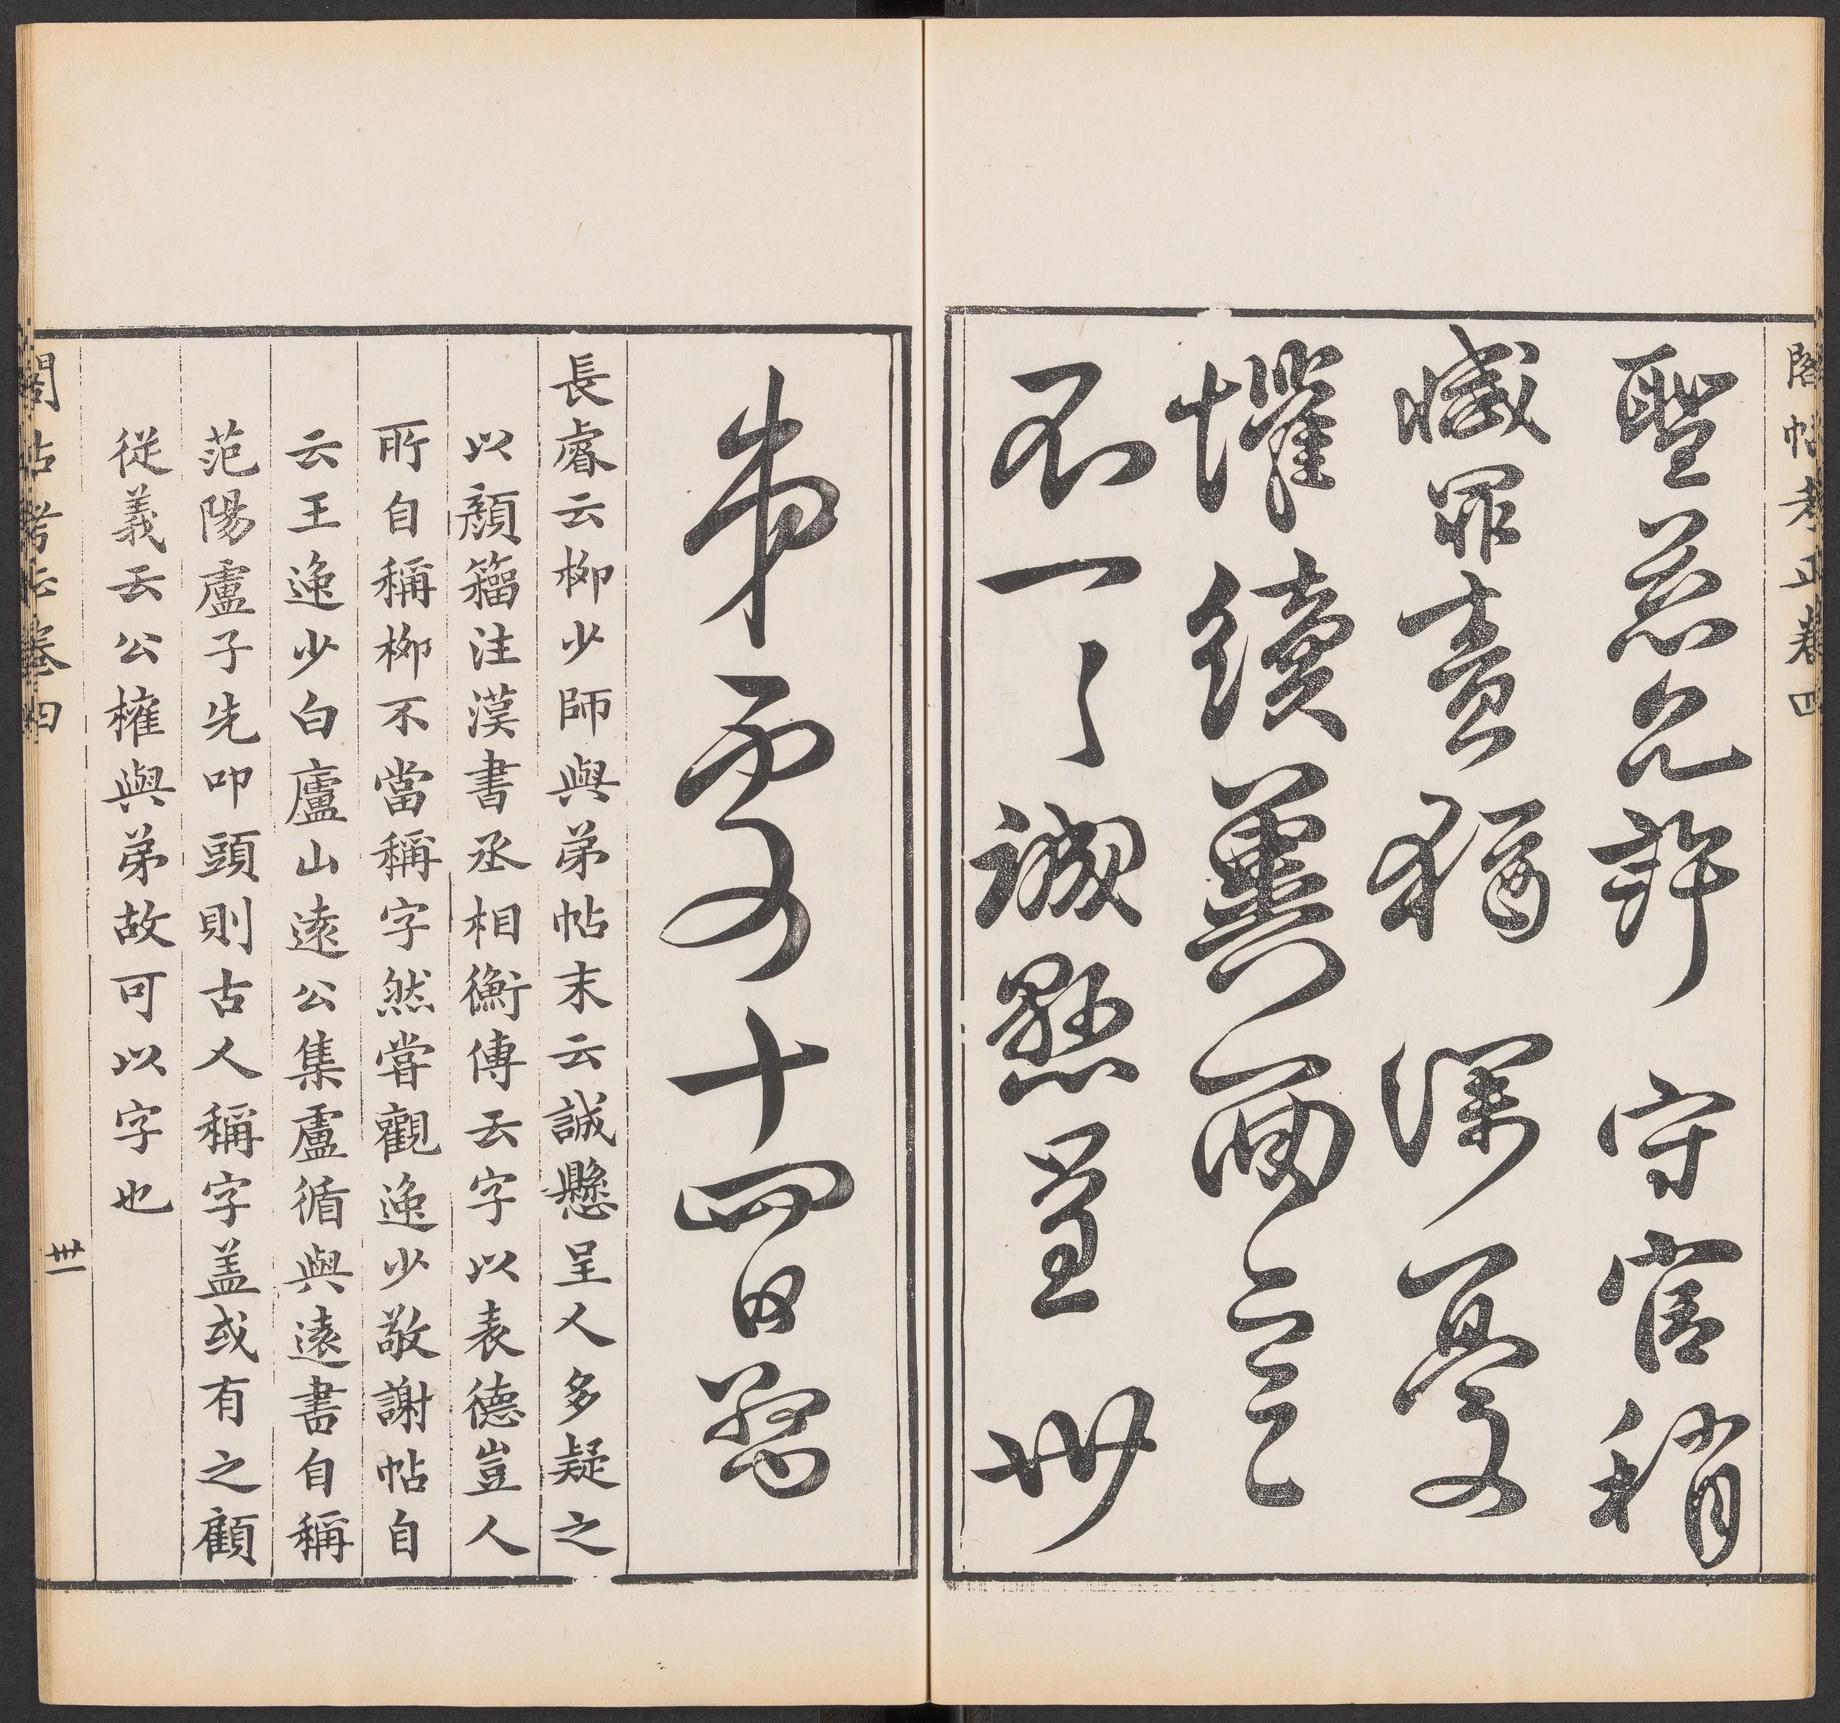 閣帖考正卷四
聖慈允許守官稍
減罪責猶深憂
懼續冀面言
不一一誠懸呈卅
弟處十四日
長睿云栁少師與弟帖末云誠懸呈人多疑之
以顏籀注漢書丞相衡傳云字以表德豈人
所自稱栁不當稱字然嘗觀逸少敬謝帖自
云王逸少白廬山遠公集盧循與遠書自稱
范陽盧子先叩頭則古人稱字盖或有之顧
從義云公權與弟故可以字也
閣帖考正卷四
卅一